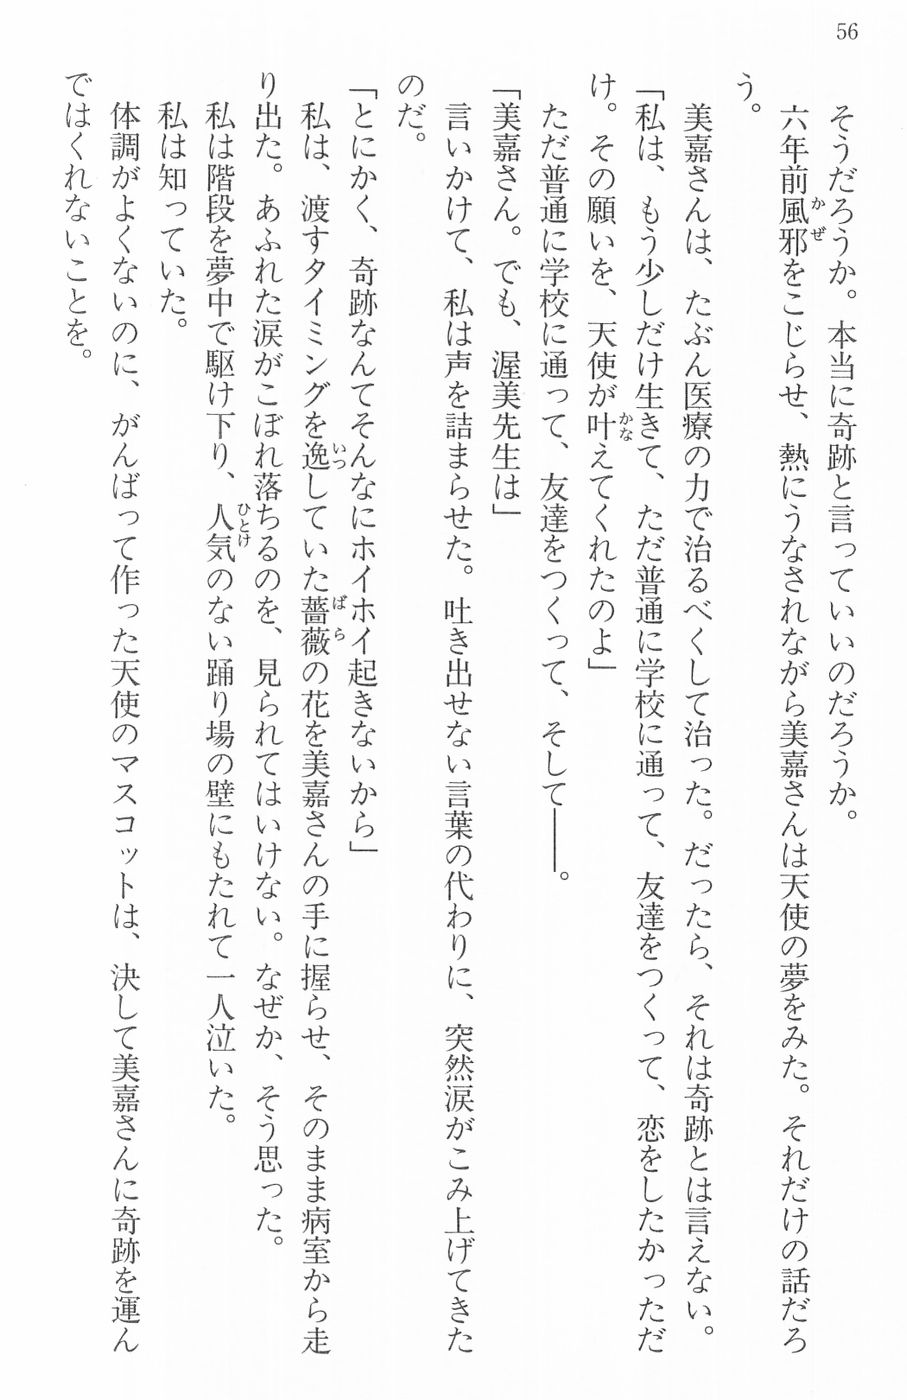 56
そうだろうか。本当に奇跡と言っていいのだろうか。
六年前風邪をこじらせ、熱にうなされながら美嘉さんは天使の夢をみた。それだけの話だろ
う。
美嘉さんは、たぶん医療の力で治るべくして治った。だったら、それは奇跡とは言えない。
「私は、もう少しだけ生きて、ただ普通に学校に通って、友達をつくって、恋をしたかっただ
け。その願いを、天使が叶えてくれたのよ」
ただ普通に学校に通って、友達をつくって、そして――。
「美嘉さん。でも、渥美先生は」
言いかけて、私は声を詰まらせた。吐き出せない言葉の代わりに、突然涙がこみ上げてきた
のだ。
「とにかく、奇跡なんてそんなにホイホイ起きないから」
私は、渡すタイミングを逸していた薔薇の花を美嘉さんの手に握らせ、そのまま病室から走
り出た。あふれた涙がこぼれ落ちるのを、見られてはいけない。なぜか、そう思った。
私は階段を夢中で駆け下り、人気のない踊り場の壁にもたれて一人泣いた。
私は知っていた。
体調がよくないのに、がんばって作った天使のマスコットは、決して美嘉さんに奇跡を運ん
ではくれないことを。